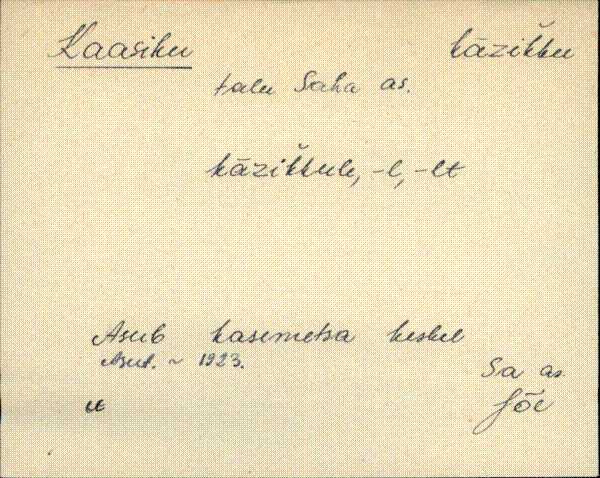 Kaasiku kāzik̆ku
talu Saha as.
kāzik̆kule, -l, -lt
Asub kasemetsa keskel
Asut. ~ 1923.
Sa as.
Jõe